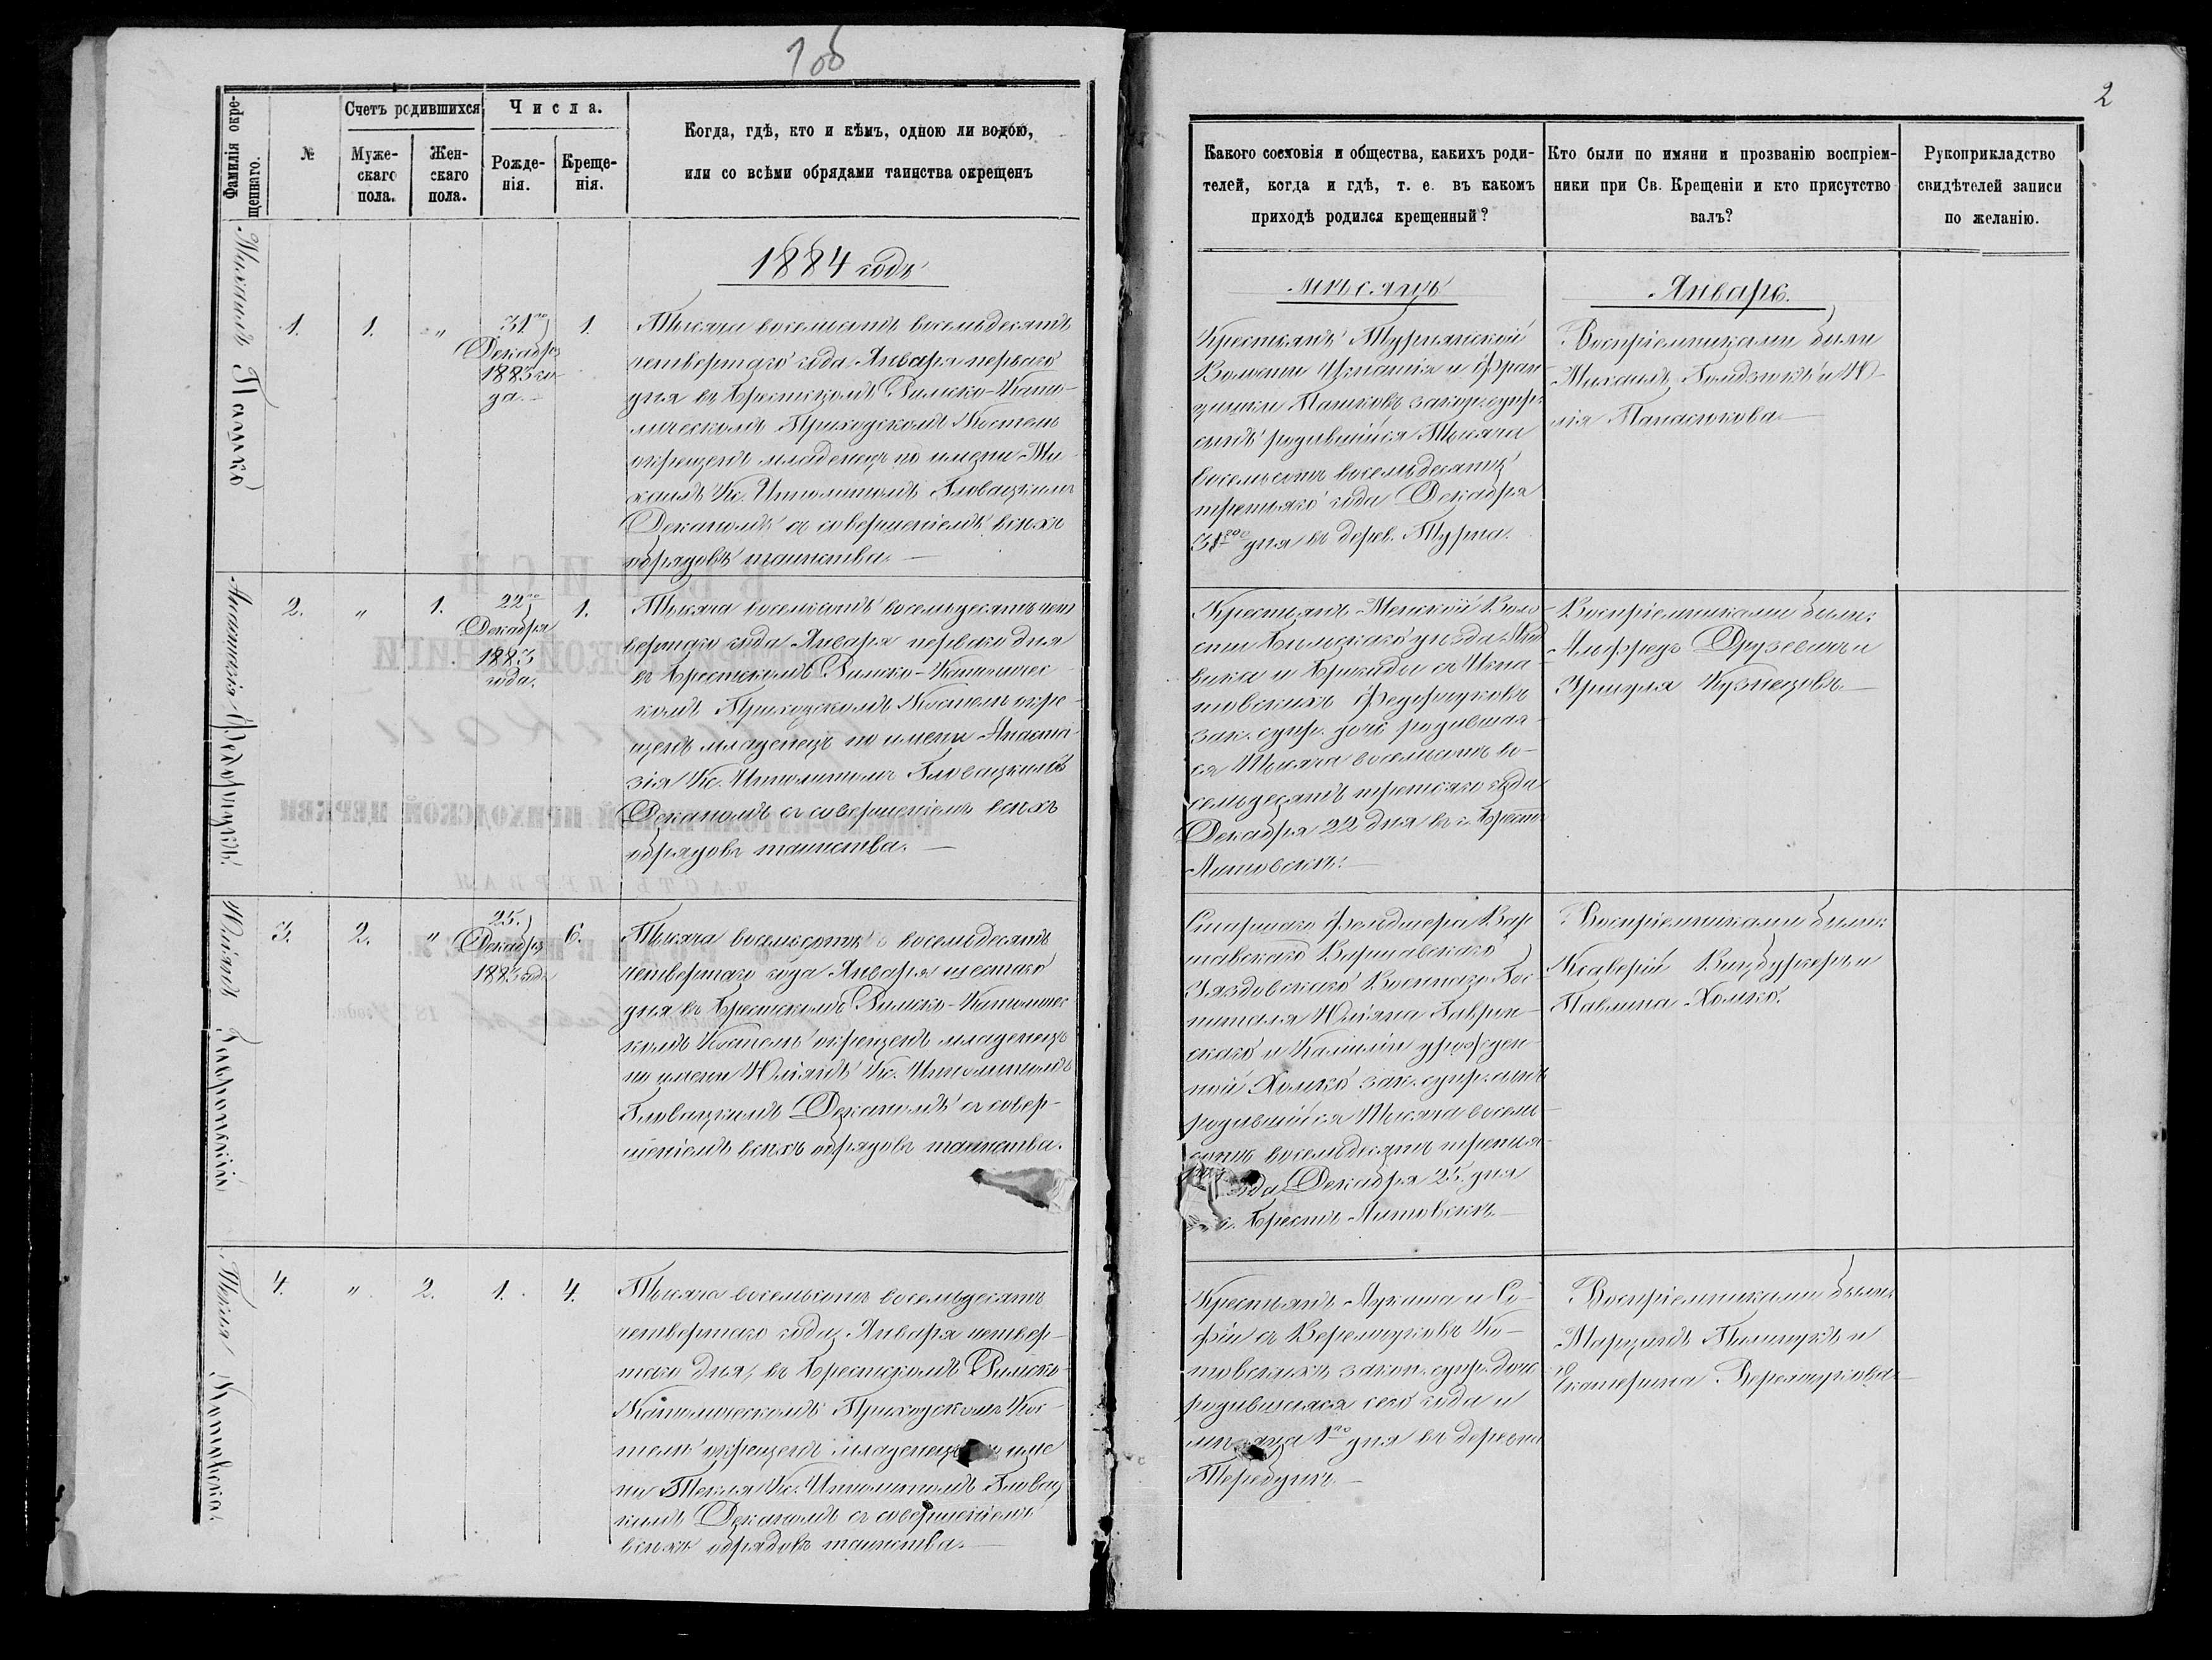 1об
Фамилія окре-
щеннаго.
№
Счетъ родившихся
Муже-
скаго
пола.
Жен-
скаго
пола.
Числа.
Рожде-
нія.
Креще-
нія.
Когда, гдѣ, кто и кѣмъ, одною ли водою,
или со всѣми обрядами таинства окрещенъ
1884 годъ
Михаилъ Пашко
1.
1.
"
31го
Декабря
1883 го-
да.
1.
Тысяча восемьсотъ восемьдесятъ
четвертаго года Января перваго
дня въ Брестскомъ Римско-Като-
лическомъ Приходскомъ Костелѣ
окрещенъ младенецъ по имени Ми-
хаилъ Кс. Ипполитомъ Гловацкимъ
Деканомъ съ совершеніемъ всѣхъ
обрядовъ таинства.
Анастазія Федорчукъ
2.
"
1.
22го
Декабря
1883
года.
1.
Тысяча восемьсотъ восемьдесятъ чет
вертаго года Января перваго дня
въ Брестскомъ Римско-Католичес
комъ Приходскомъ Костелѣ окре-
щенъ младенецъ по имени Анаста-
зія Кс. Ипполитомъ Гловацкимъ
Деканомъ съ совершеніемъ всѣхъ
обрядовъ таинства.
Юліянъ Гавронскій
3.
2.
"
25.
Декабря
1883 год.
6.
Тысяча восемьсотъ восемьдесятъ
четвертаго года Января шестаго
дня въ Брестскомъ Римско-Католичес
комъ Костелѣ окрещенъ младенецъ
по имени Юліянъ Кс. Ипполитомъ
Гловацкимъ Деканомъ съ совер-
шеніемъ всѣхъ обрядовъ таинства.
Текля Котовская
4.
"
2.
1.
4.
Тысяча восемьсотъ восемьдесятъ
четвертаго года Января четвер-
таго дня, въ Брестскомъ Римско-
Католическомъ Приходскомъ Кос-
телѣ окрещенъ младенецъ име
ни Текля Кс. Ипполитомъ Гловац
кимъ Деканомъ съ совершеніемъ
всѣхъ обрядовъ таинства.
2
Какого сословія и общества, какихъ роди-
телей, когда и гдѣ, т. е. въ какомъ
приходѣ родился крещенный?
Кто были по имяни и прозванію воспріем-
ники при Св. Крещеніи и кто присутство
валъ?
Рукоприкладство
свидѣтелей записи
по желанію.
мѣсяцъ
Январь.
Крестьянъ Турнянской
Волости Игнатія и Фран
цишки Пашковъ закон. супр.
сынъ родившійся Тысяча
восемьсотъ восемьдесятъ
третьяго года Декабря
31го дня въ дерев. Турна.
Воспріемниками были
Михаилъ и Ю-
лія Панасюкова
Крестьянъ Волос
сти Бѣльскаго уѣзда Люд
вика и Бригиды съ Игна-
товскихъ Федорчуковъ
зак. супр. дочь родившая-
ся Тысяча восемьсотъ во-
семьдесятъ третьяго года
Декабря 22 дня въ г. Брестѣ
Литовскѣ.
Воспріемниками были:
Альфредъ и
Кузнецовъ.
Старшаго Фельдшера Вар
шавскаго Варшавскаго
Уяздовскаго Военнаго Гос-
питаля Юліяна Гаврон-
скаго и Камиліи урожден-
ной Хомко зак. супр. сынъ
родившійся Тысяча восемь
сотъ восемьдесятъ третья-
года Декабря 25 дня
г. Брестѣ Литовскѣ.
Воспріемниками были:
Ксаверій и
Павлина Хомко.
Крестьянъ Лукаша и Со-
фіи съ Веремчуковъ Ко-
товскихъ закон. супр. дочь
родившаяся сего года и
мѣсяца 1го дня въ деревнѣ
Теребунь.
Воспріемниками были:
Марцинъ и
Екатерина Веремчукова